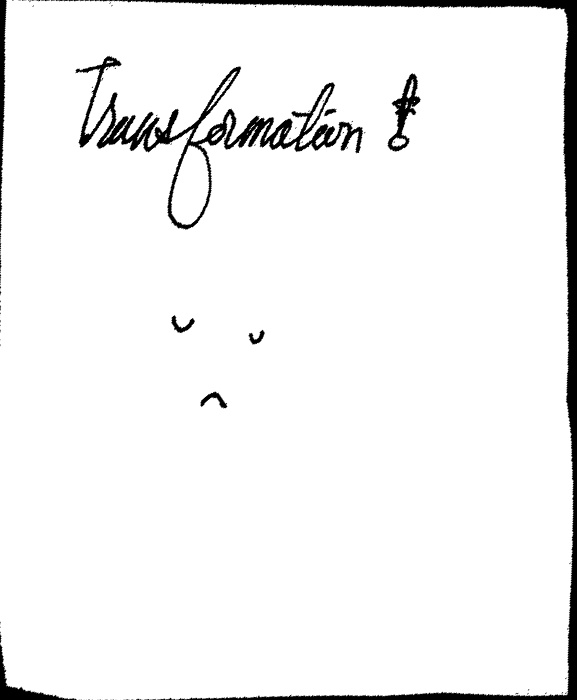 Transformation !